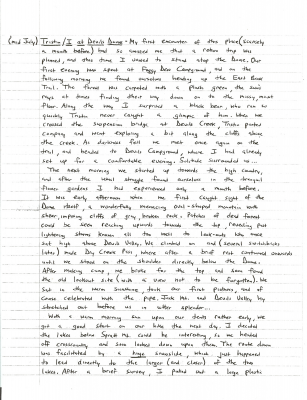 (mid July) Tristin/I at Devils Dome - My first encounter of this place (scarcely
a month before) had so amazed me that a return trip was
planned, and this time I wanted to stand atop the Dome. Our
first evening was spent at Panther Campground, and on the
following morning we found ourselves heading up the East Bank
Trail. The forest was carpeted with a plush green, the sun's
rays at times finding their way down on to the mossy, moist
floor. Along the way I surprised a black bear, who ran so
quickly Tristin never caught a glimpse of him. When we
crossed the suspension bridge at Devils Creek, Tristin parted
company and went exploring a bit along the cliffs above
the creek. As darkness fell we met once again on the
trail, and headed to Devils Campground, where I had already
set up for a comfortable evening. Solitude surrounded us...
The next morning we started up towards the high country,
and after the usual struggle found ourselves in the tranquil
flower gardens I had experienced only a month before.
It was early afternoon when we first caught sight of the
Dome itself, a wonderfully menacing mountain, with
sheer, imposing cliffs of gray, broken rock. Patches of dead forest
could be seen reaching upwards towards the top, revealing the
lightening storms known all too well to look-outs who once
sat high above Devils Valley. We climbed on and (several switchbacks
later) made Dry Creek Pass, where after a brief rest continued onwards
until we stood on the shoulder directly below the Dome.
After making camp, we broke for the top and soon found
the old lookout site (with a view not to be forgotten). We
sat in the warm sunshine, took our first pictures, and of
course celebrated with the pipe. Jack Mt. and Devils Valley lay
stretched out before us in utter splendor...
With a warm morning sun upon our tents rather early, we
got a good start on our hike the next day. I decided
the lakes below Spratt Mt. could be interesting, so we headed
off crosscountry and soon looked down upon them. The route down
was facilitated by a huge snowslide, which just happened
to lead directly to the largest (and closest) of the two
lakes. After a brief survey, I pulled out a large plastic